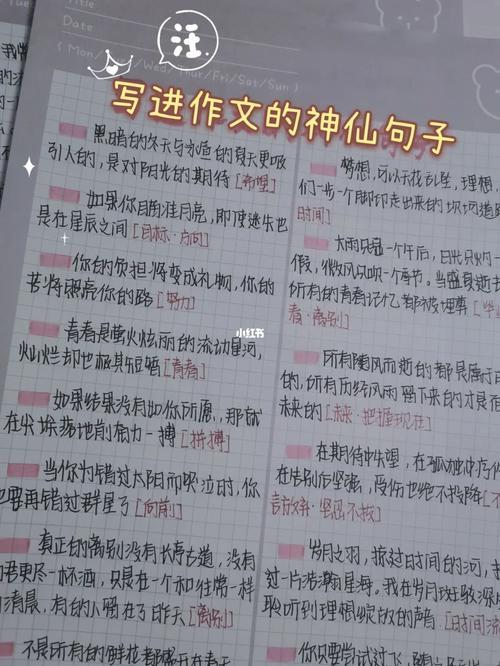 Title
Date
(Mon/
Wed/Thur/Fri/Sat/Sun)
注
写进作文的神仙句子
黑暗的冬天与
的夏天更吸
引人的，是对阳光的期待[希望]
如果你目向准月亮，即使迷失也
是在星辰之间[目标·方向]
你的负担将变成礼物，你的
苦将照亮你的路[努力]
青春是萤火炫丽的流动星河，
灿烂却也极其短暂[青春]
如果结果没有如你所愿，那就
在尘埃落地前奋力一搏[拼搏]
当你为错过太阳而哭泣时，你
也要再错过群星了[向前]
真正的离别没有长亭古道，没有
君更尽一杯酒，只是在一个和往常一样
清晨，有的人留在了昨天[离别]
不是所有的鲜花都盛开在春天
梦想，可以天花乱坠，理想，
们一步一个脚印走出来的坎坷道路
时间]
大雨只逼一个午后，日光只灼一
假，微风只吹一个春节。当盛夏逝去
所有的青春记忆都被埋葬[毕
春·离别]
所有随风而逝的都是属于
的，所有历经风雨留下来的才是
未来的[未来·把握现在]
小红书
在其期待中失望，在孤独中
在告别后坚强，受伤也绝不投降[不
言放弃·坚函不拔]
岁月之羽，掠过时间的河，
过一片浩瀚的星海。我在岁月
聆听到理想绽放的声音.[时间流
你只要尝试过飞，